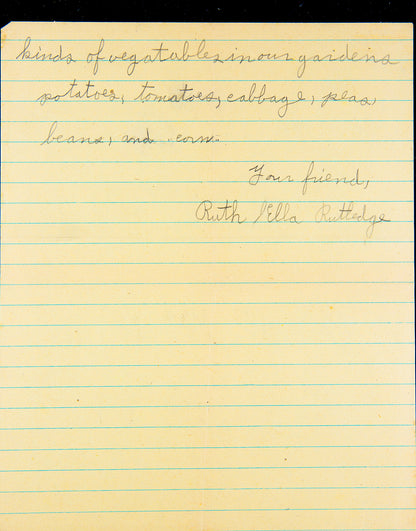 kinds of vegatables in our gardens
potatoes, tomatoes, cabbage, peas,
beans, and corn.
Your friend,
Ruth Ella Rutledge